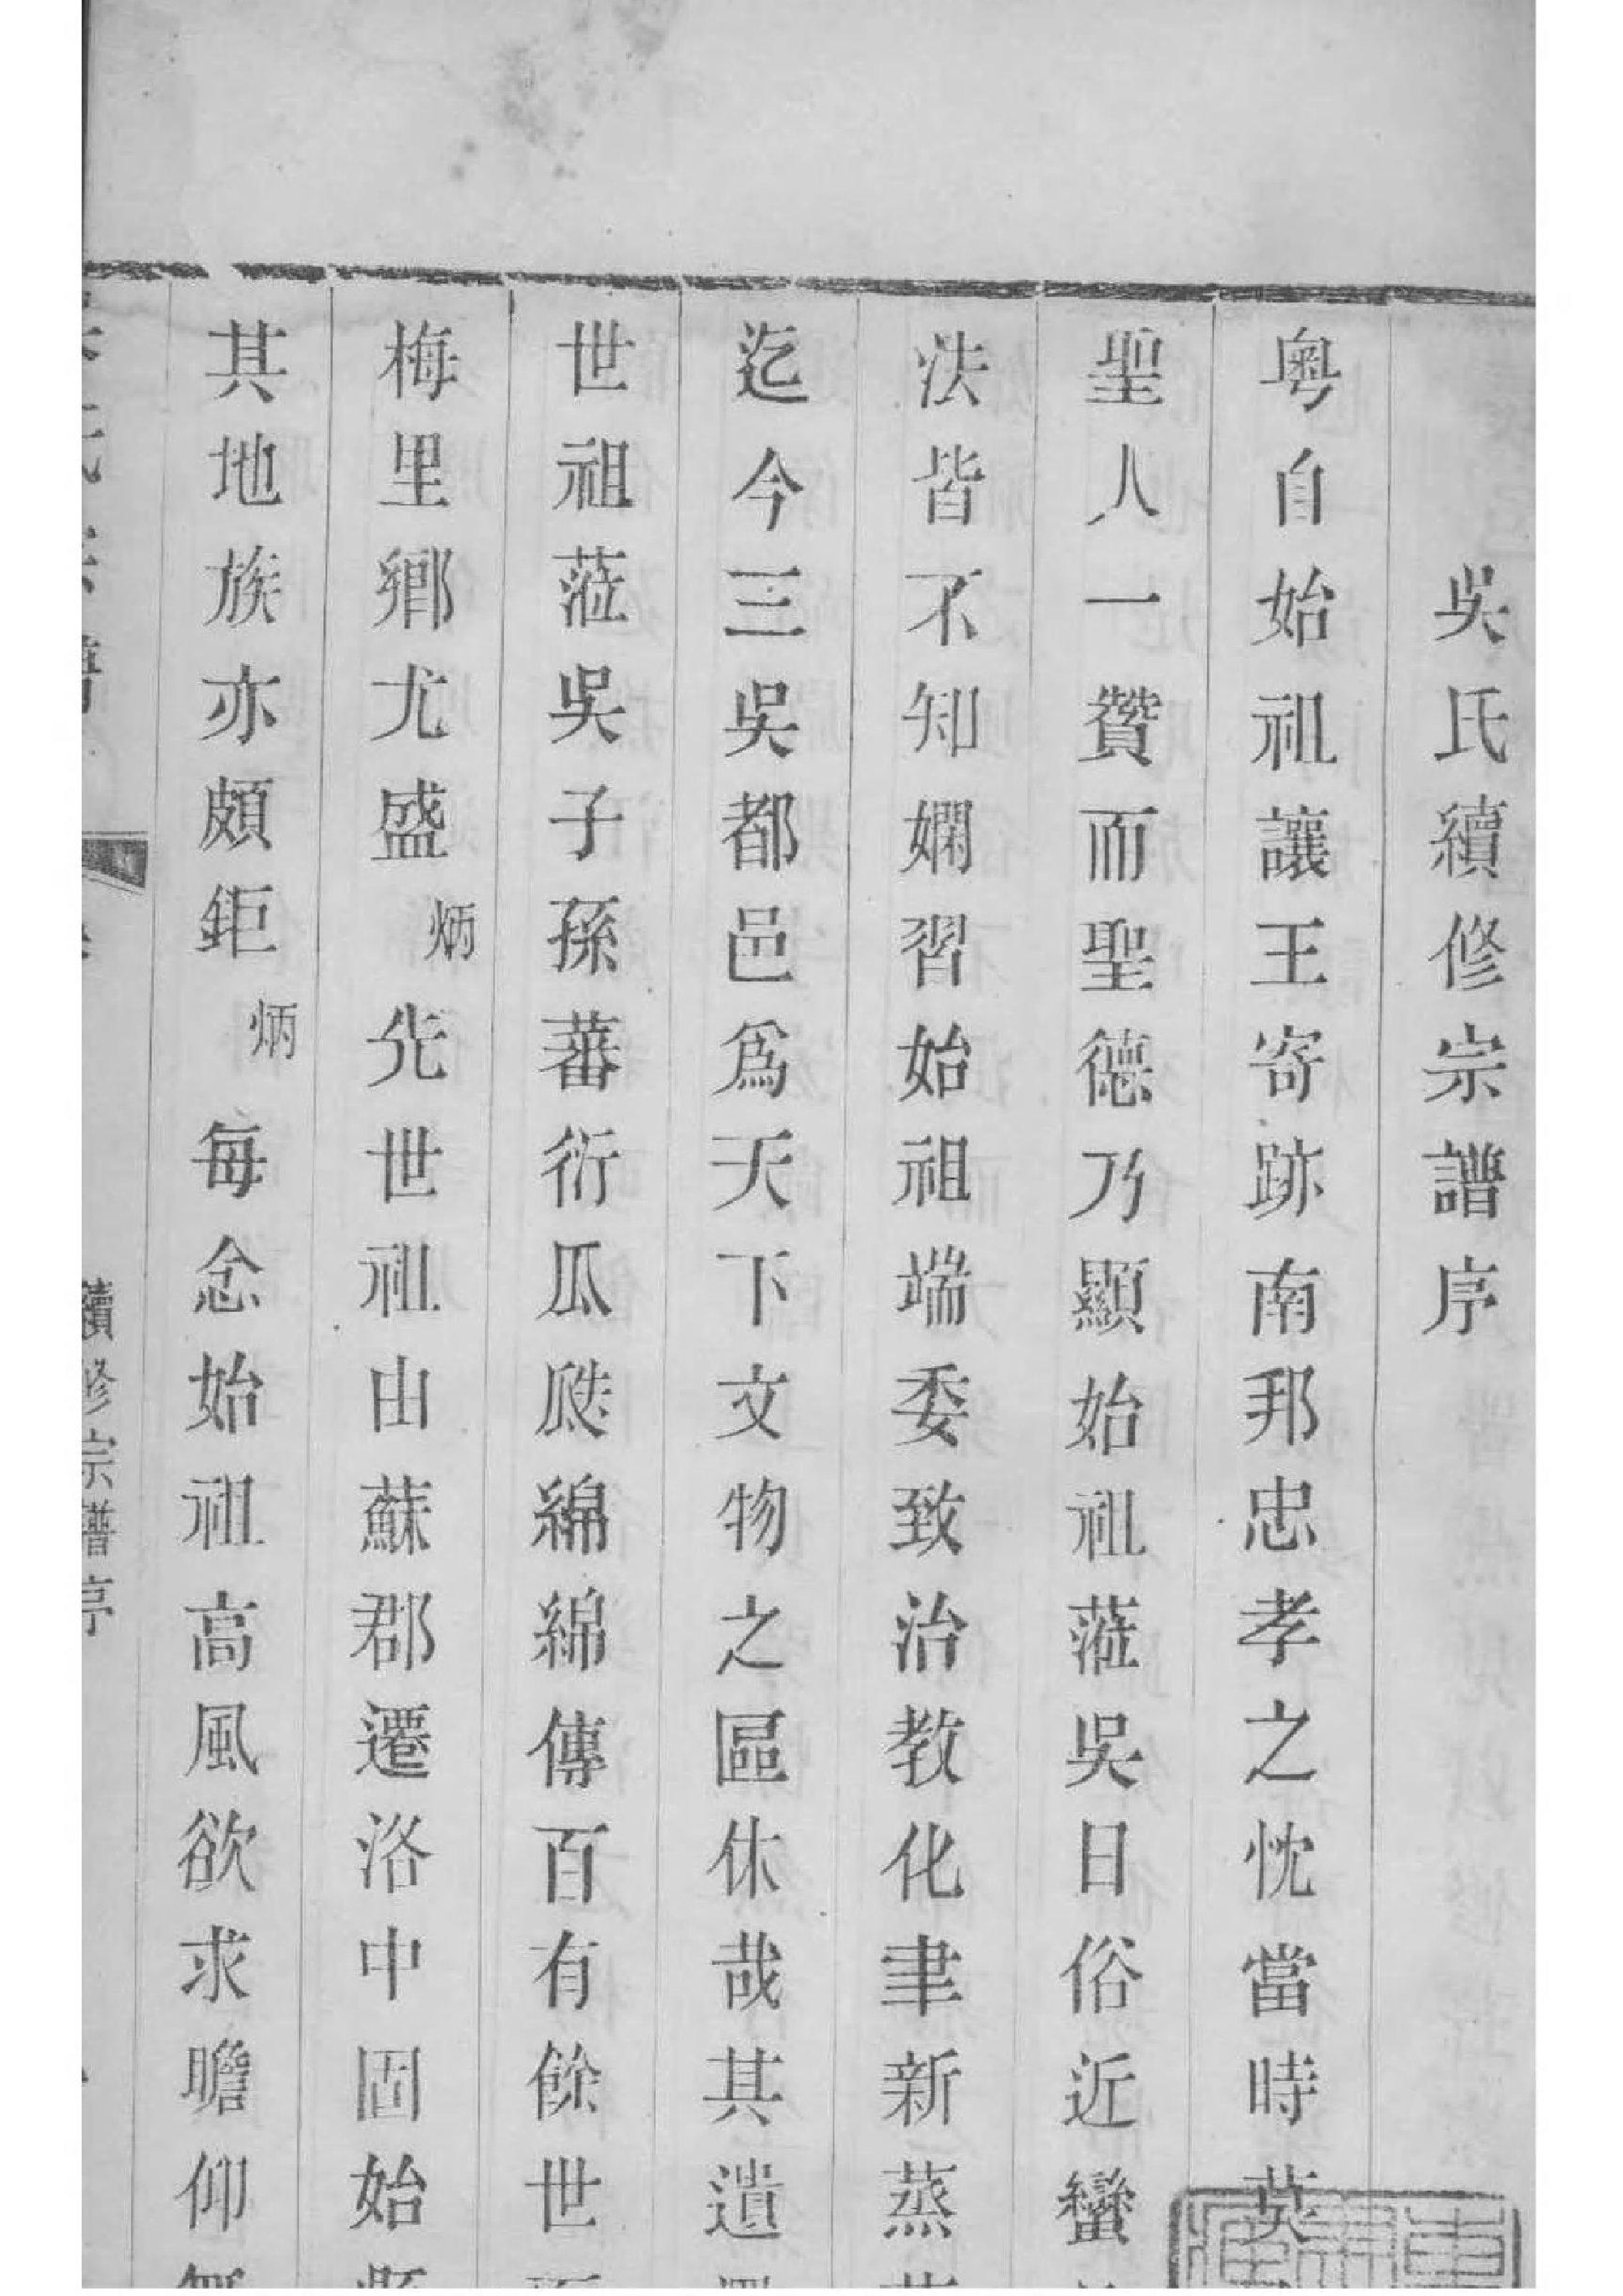 吳氏續修宗譜序
粵自始祖讓王寄跡南邦忠孝之忱當時莫
聖人一贊而聖德乃顯始祖蒞吳日俗近蠻
法皆不知嫻習始祖端委致治教化聿新蒸
迄今三吳都邑爲天下文物之區休哉其遺
世祖蒞吳子孫蕃衍瓜瓞綿綿傳百有餘世
梅里鄉尤盛炳先世祖由蘇郡遷洛中固始
其地族亦頗鉅炳每念始祖高風欲求瞻仰
續修宗譜序